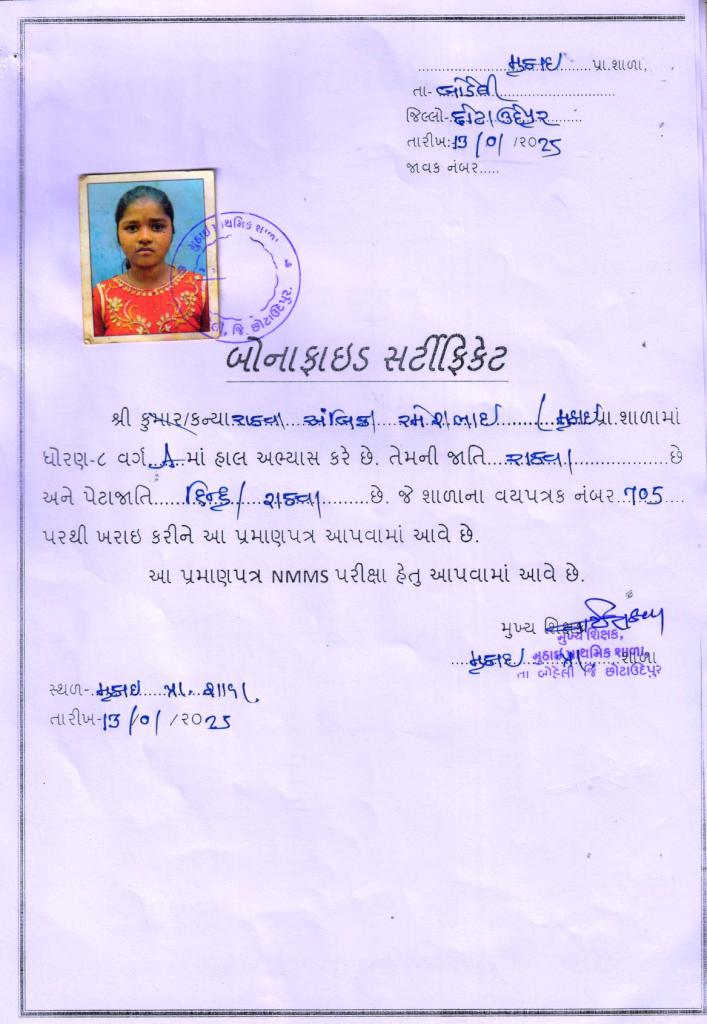 મુઠાઇ પ્રા.શાળા,
તા-બોડેલી
જિલ્લો-છોટાઉદેપુર
તારીખ:13/01/૨૦25
જાવક નંબર.....
મુઠાઇ પ્રાથમિક શાળા
તા. જિ. છોટાઉદેપુર
બોનાફાઇડ સર્ટીફિકેટ
શ્રી કુમાર/કન્યા રાઠવા અંબિકા રમેશભાઇ (મુઠાઇ પ્રા.શાળામાં
ધોરણ-૮ વર્ગ A માં હાલ અભ્યાસ કરે છે. તેમની જાતિ રાઠવા છે
અને પેટાજાતિ હિન્દુ/રાઠવા છે. જે શાળાના વયપત્રક નંબર 705
પરથી ખરાઇ કરીને આ પ્રમાણપત્ર આપવામાં આવે છે.
આ પ્રમાણપત્ર NMMS પરીક્ષા હેતુ આપવામાં આવે છે.
મુખ્ય શિક્ષક
મુખ્ય શિક્ષક,
મુઠાઇ પ્રાથમિક શાળા,
મુઠાઇ પ્રા. શાળા
તા બોડેલી જિ છોટાઉદેપુર
સ્થળ-મુઠાઇ પ્રા. શાળા
તારીખ-13/01/૨૦25